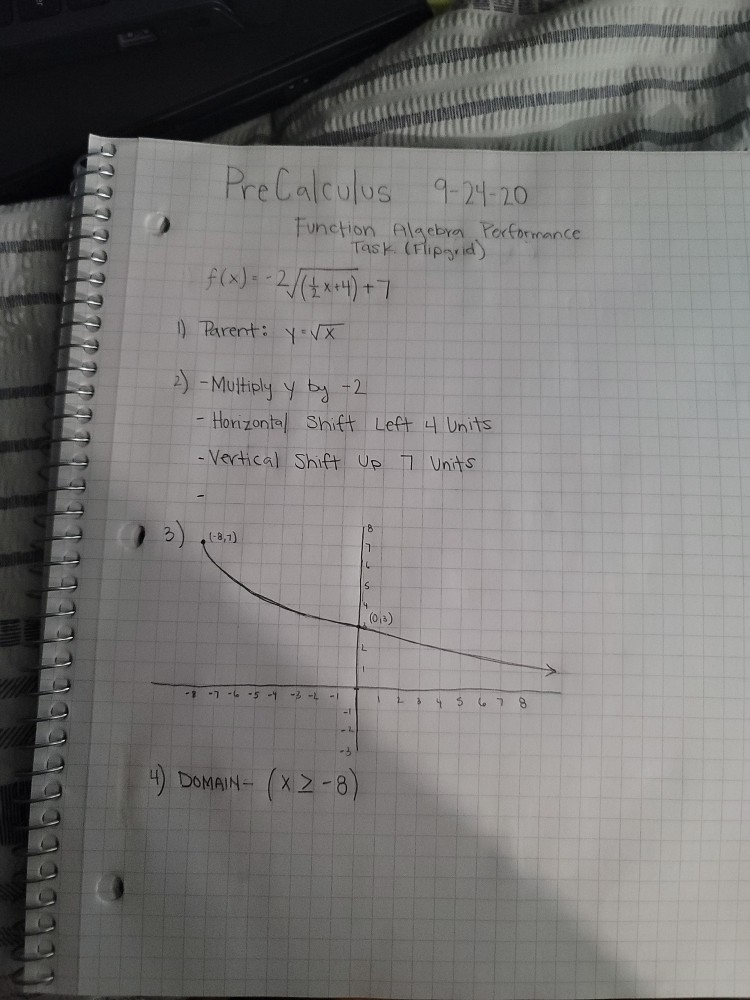 PreCalculus 9-24-20
Function Algebra Performance
Task (Flipgrid)
f(x) = -2√(½x+4) + 7
1) Parent: y=√x
2) -Multiply y by -2
- Horizontal Shift Left 4 Units
-Vertical Shift Up 7 Units
-
3) (-8,7)
8
7
6
5
4
(0,3)
2
1
-8 -7 -6 -5 -4 -3 -2 -1 1 2 3 4 5 6 7 8
-1
-2
-3
4) DOMAIN- (x ≥ -8)